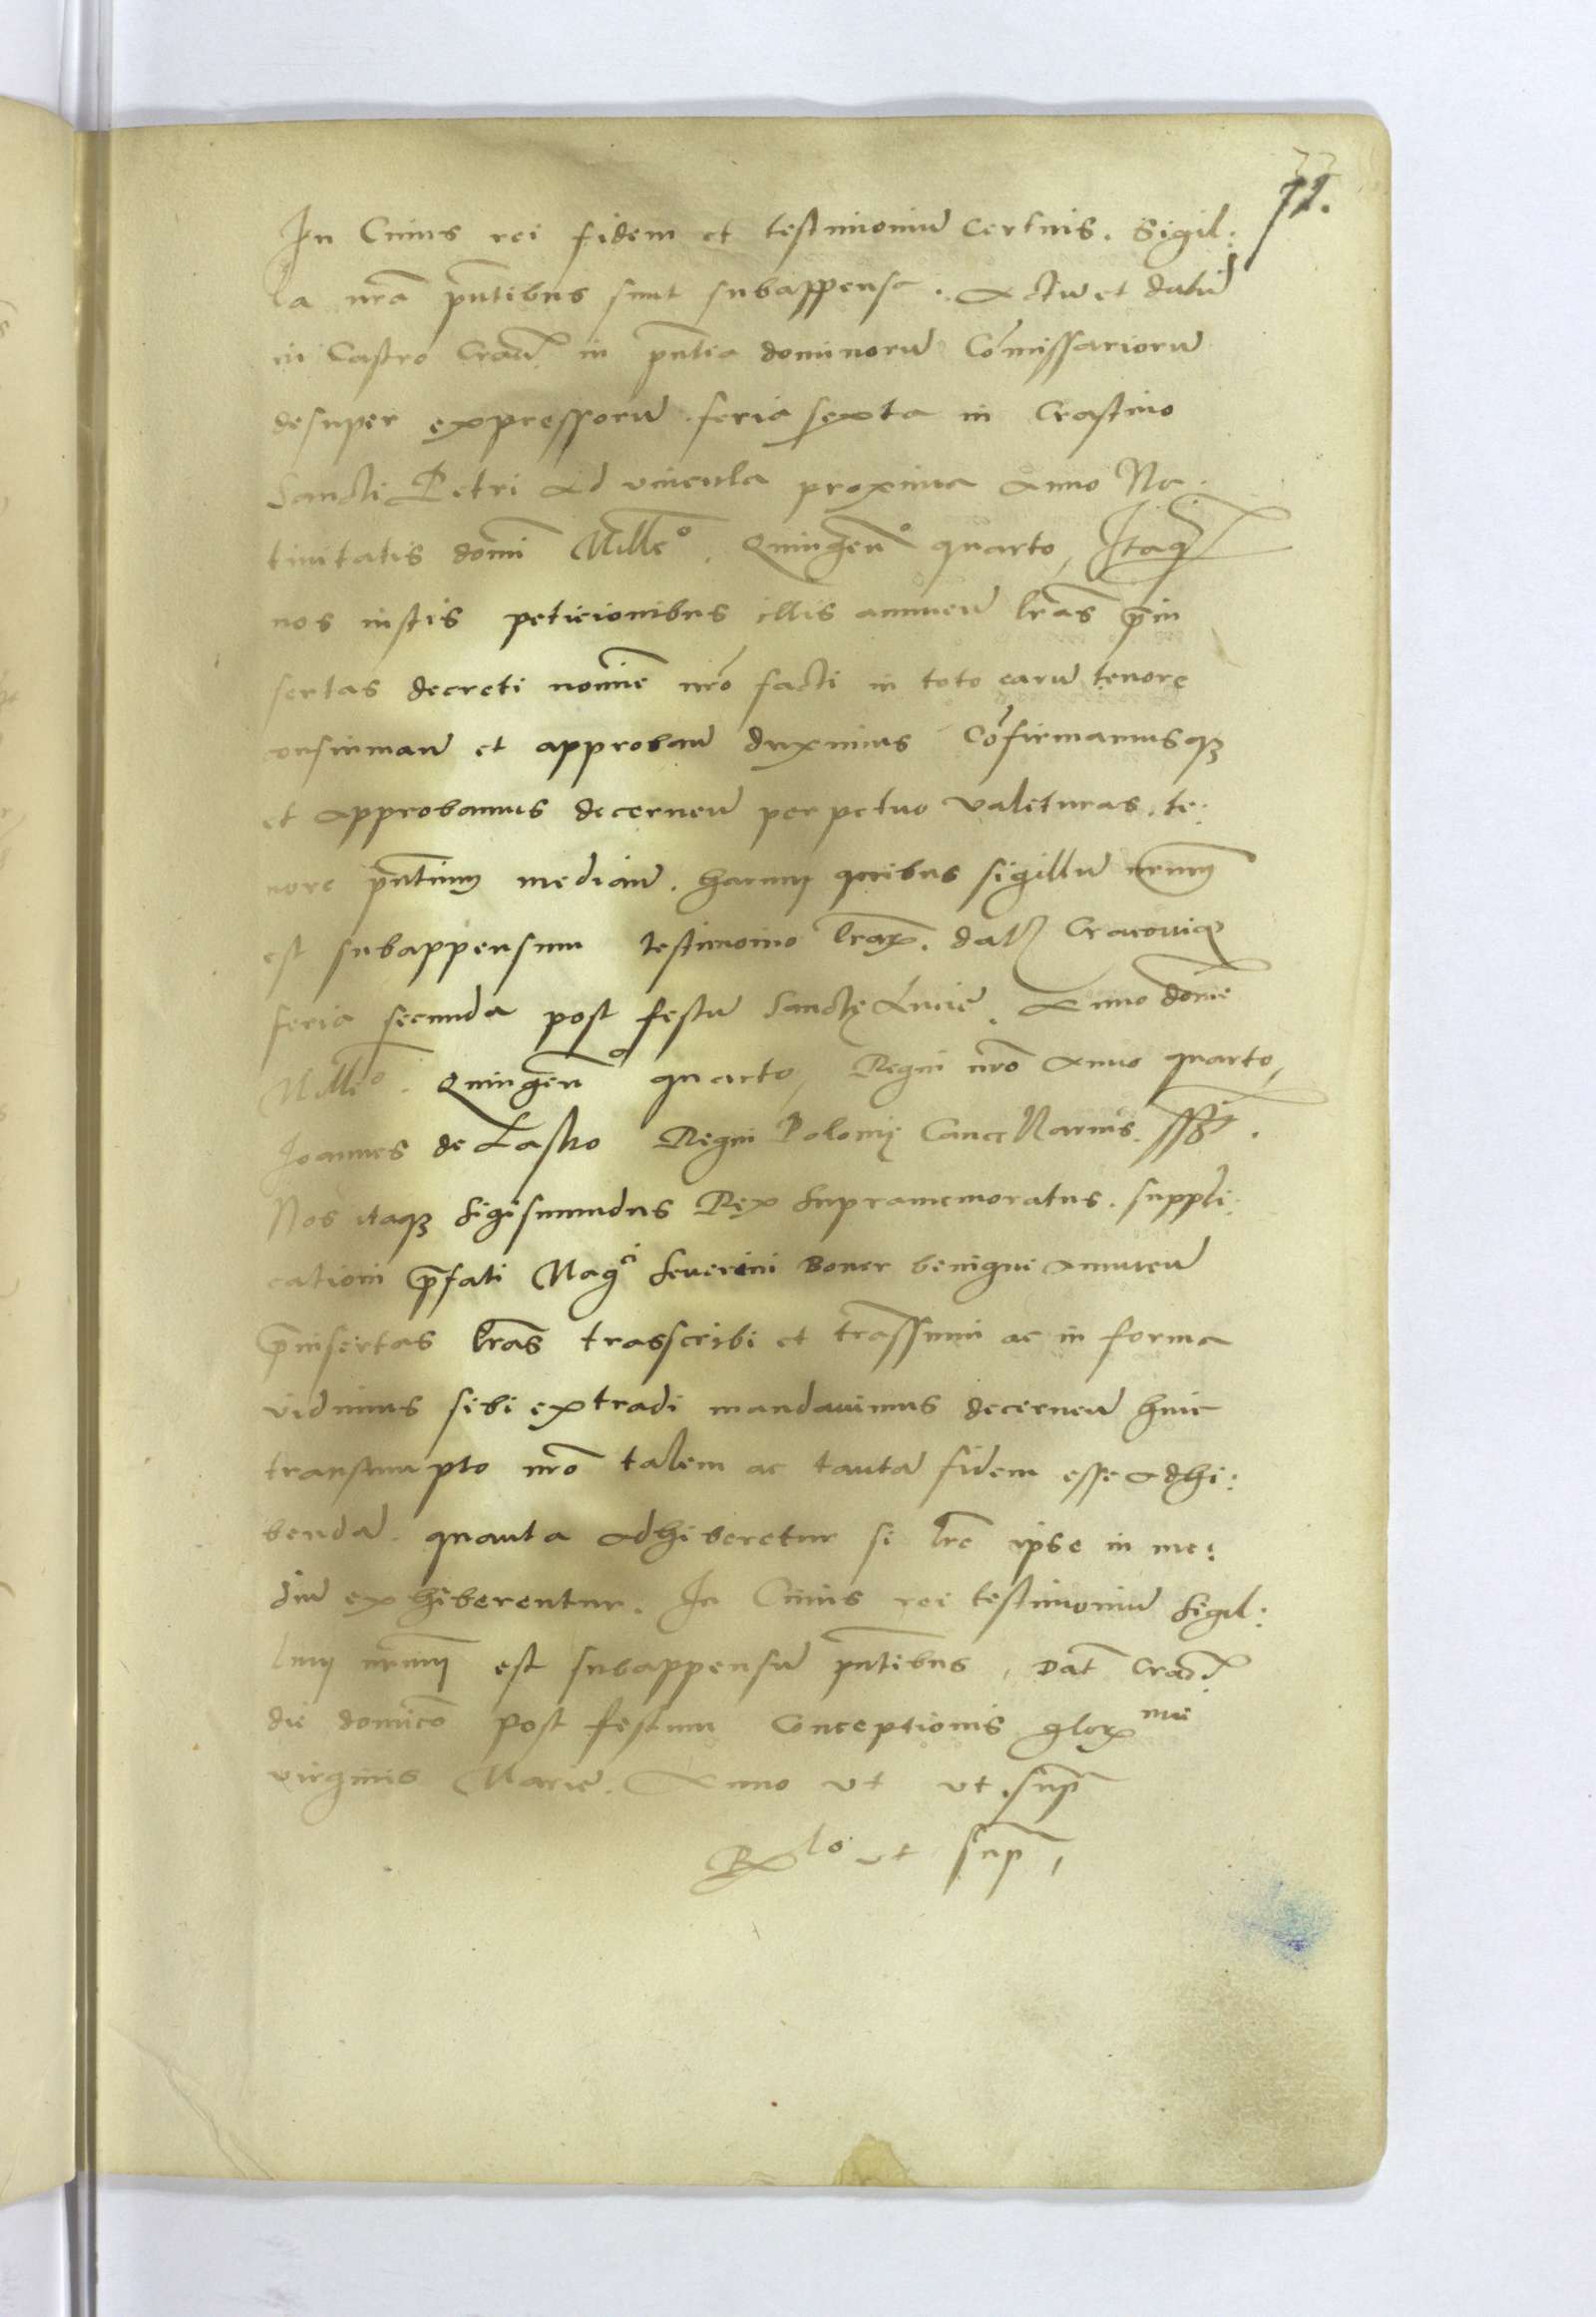 77
71.
In Cuius rei fidem et testimoniū Certius. Sigil:
la nrā pntibus sunt subappensa. Actū et datū
in Castro Cracū in pntia dominorū Cōmissariorū
desuper expressorū feria sexta in Crastino
Sancti Petri Ad vincula proxima Anno Na.
tiuitatis domī Mille°. Quingeñ° quarto, Itaq
nos iustis peticionibus illis annueñ lrās p̄in
sertas decreti nomīe nrō facti in toto earū tenore
confirmañ et approbañ duximus Cōfirmamusqȝ
et Approbamus decerneñ perpetuo valituras. te:
nore pntium mediañ. harum quibus sigillū nrum
est subappensum testimonio lraꝝ. datȝ Cracouięo
feria secunda post festū Sanctę Lucie. Anno domīe
Mille°. Quingeñ° quarto, Regni nrō Anno quarto,
Joannes de Lasko Regni Polonię Cancellarius. sst.
Nos itaqȝ Sigismundus Rex Supramemoratus. suppli:
cationi p̄fati Magci Seuerini Boner benigne Annueñ
p̄insertas lrās trasscribi et trāssumi ac in forma
vidimus sibi extradi mandauimus decerneñ huic
transumpto nrō talem ac tantā fidem esse Adhi:
bendā. quanta Adhiberetur si lrē ipse in me:
diū exhiberentur. In Cuius rei testimoniū Sigil:
lum nrum est subappensū pntibus, Dat Crac.
die domīco post festum Conceptionis gloꝝ mę
virginis Marie. Anno vt vt sup̄
Rlo vt sup̄,